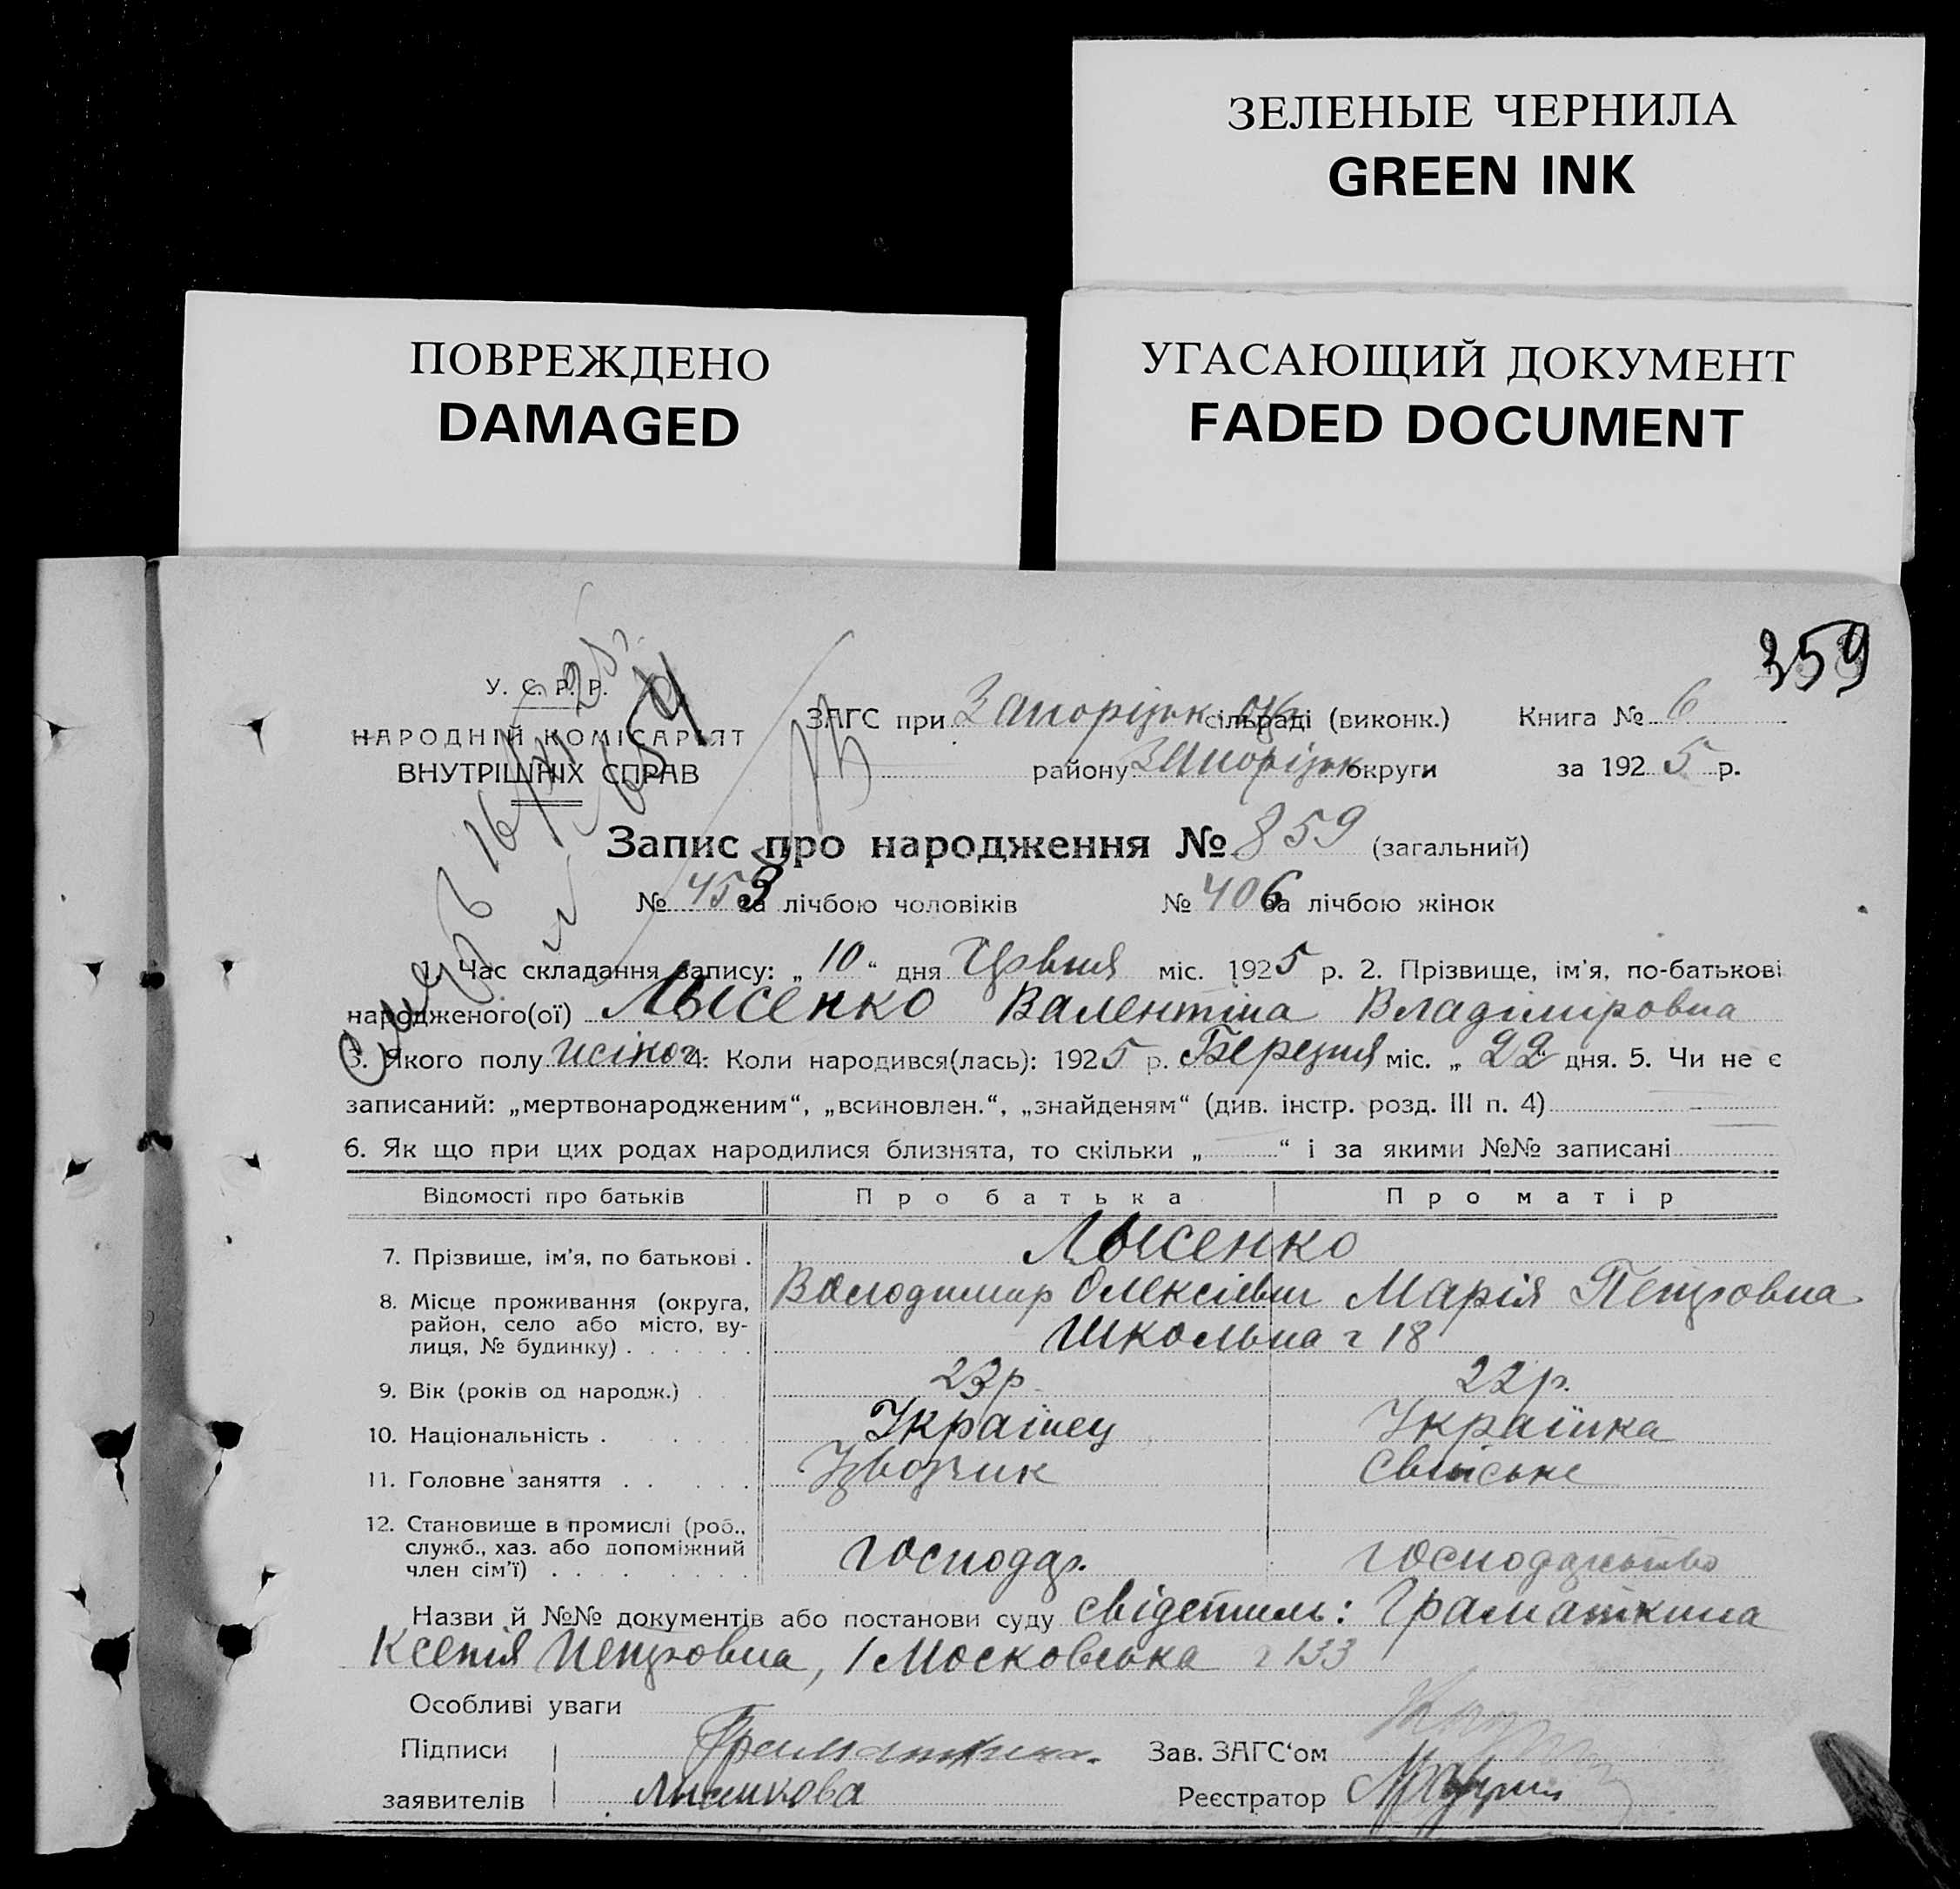 ЗЕЛЕНЫЕ ЧЕРНИЛА
GREEN INK
ПОВРЕЖДЕНО
DAMAGED
УГАСАЮЩИЙ ДОКУМЕНТ
FADED DOCUMENT
359
У. С. Р. Р.
НАРОДНІЙ КОМІСАРІЯТ
ВНУТРІШНІХ СПРАВ
ЗАГС при Запоріжк сільраді (виконк.) Книга № 6
району Запоріжк округи за 1925 р.
Запис про народження № 859 (загальний)
№ 453 за лічбою чоловіків № 406 за лічбою жінок
1. Час складання запису: „ 10 “ дня Червня міс. 1925 р. 2. Прізвище, ім'я, по-батькові
народженого(ої) Лысенко Валентіна Владіміровна
3. Якого полу жіноч. 4. Коли народився(лась): 1925 р. Березня міс. „ 22 дня. 5. Чи не є
записаний: „мертвонародженим“, „всиновлен.“, „знайденям“ (див. інстр. розд. III п. 4)
6. Як що при цих родах народилися близнята, то скільки „ “ і за якими №№ записані
Відомості про батьків Про батька Про матір
7. Прізвище, ім'я, по батькові . Лысенко
8. Місце проживання (округа, Володимир Олексієвич Марія Петровна
район, село або місто, ву-
лиця, № будинку) . Школьна ч 18
9. Вік (років од народж.) . 23р. 22р.
10. Національність . Українец Українка
11. Головне заняття . Ізвозчик Свійське
12. Становище в промислі (роб.,
служб., хаз. або допоміжний
член сім'ї) . господар. господарство
Назви й №№ документів або постанови суду свідетиль: Граматкина
Ксенія Петровна, Московська ч 133
Особливі уваги
Підписи Зав. ЗАГС'ом
заявителів Реєстратор